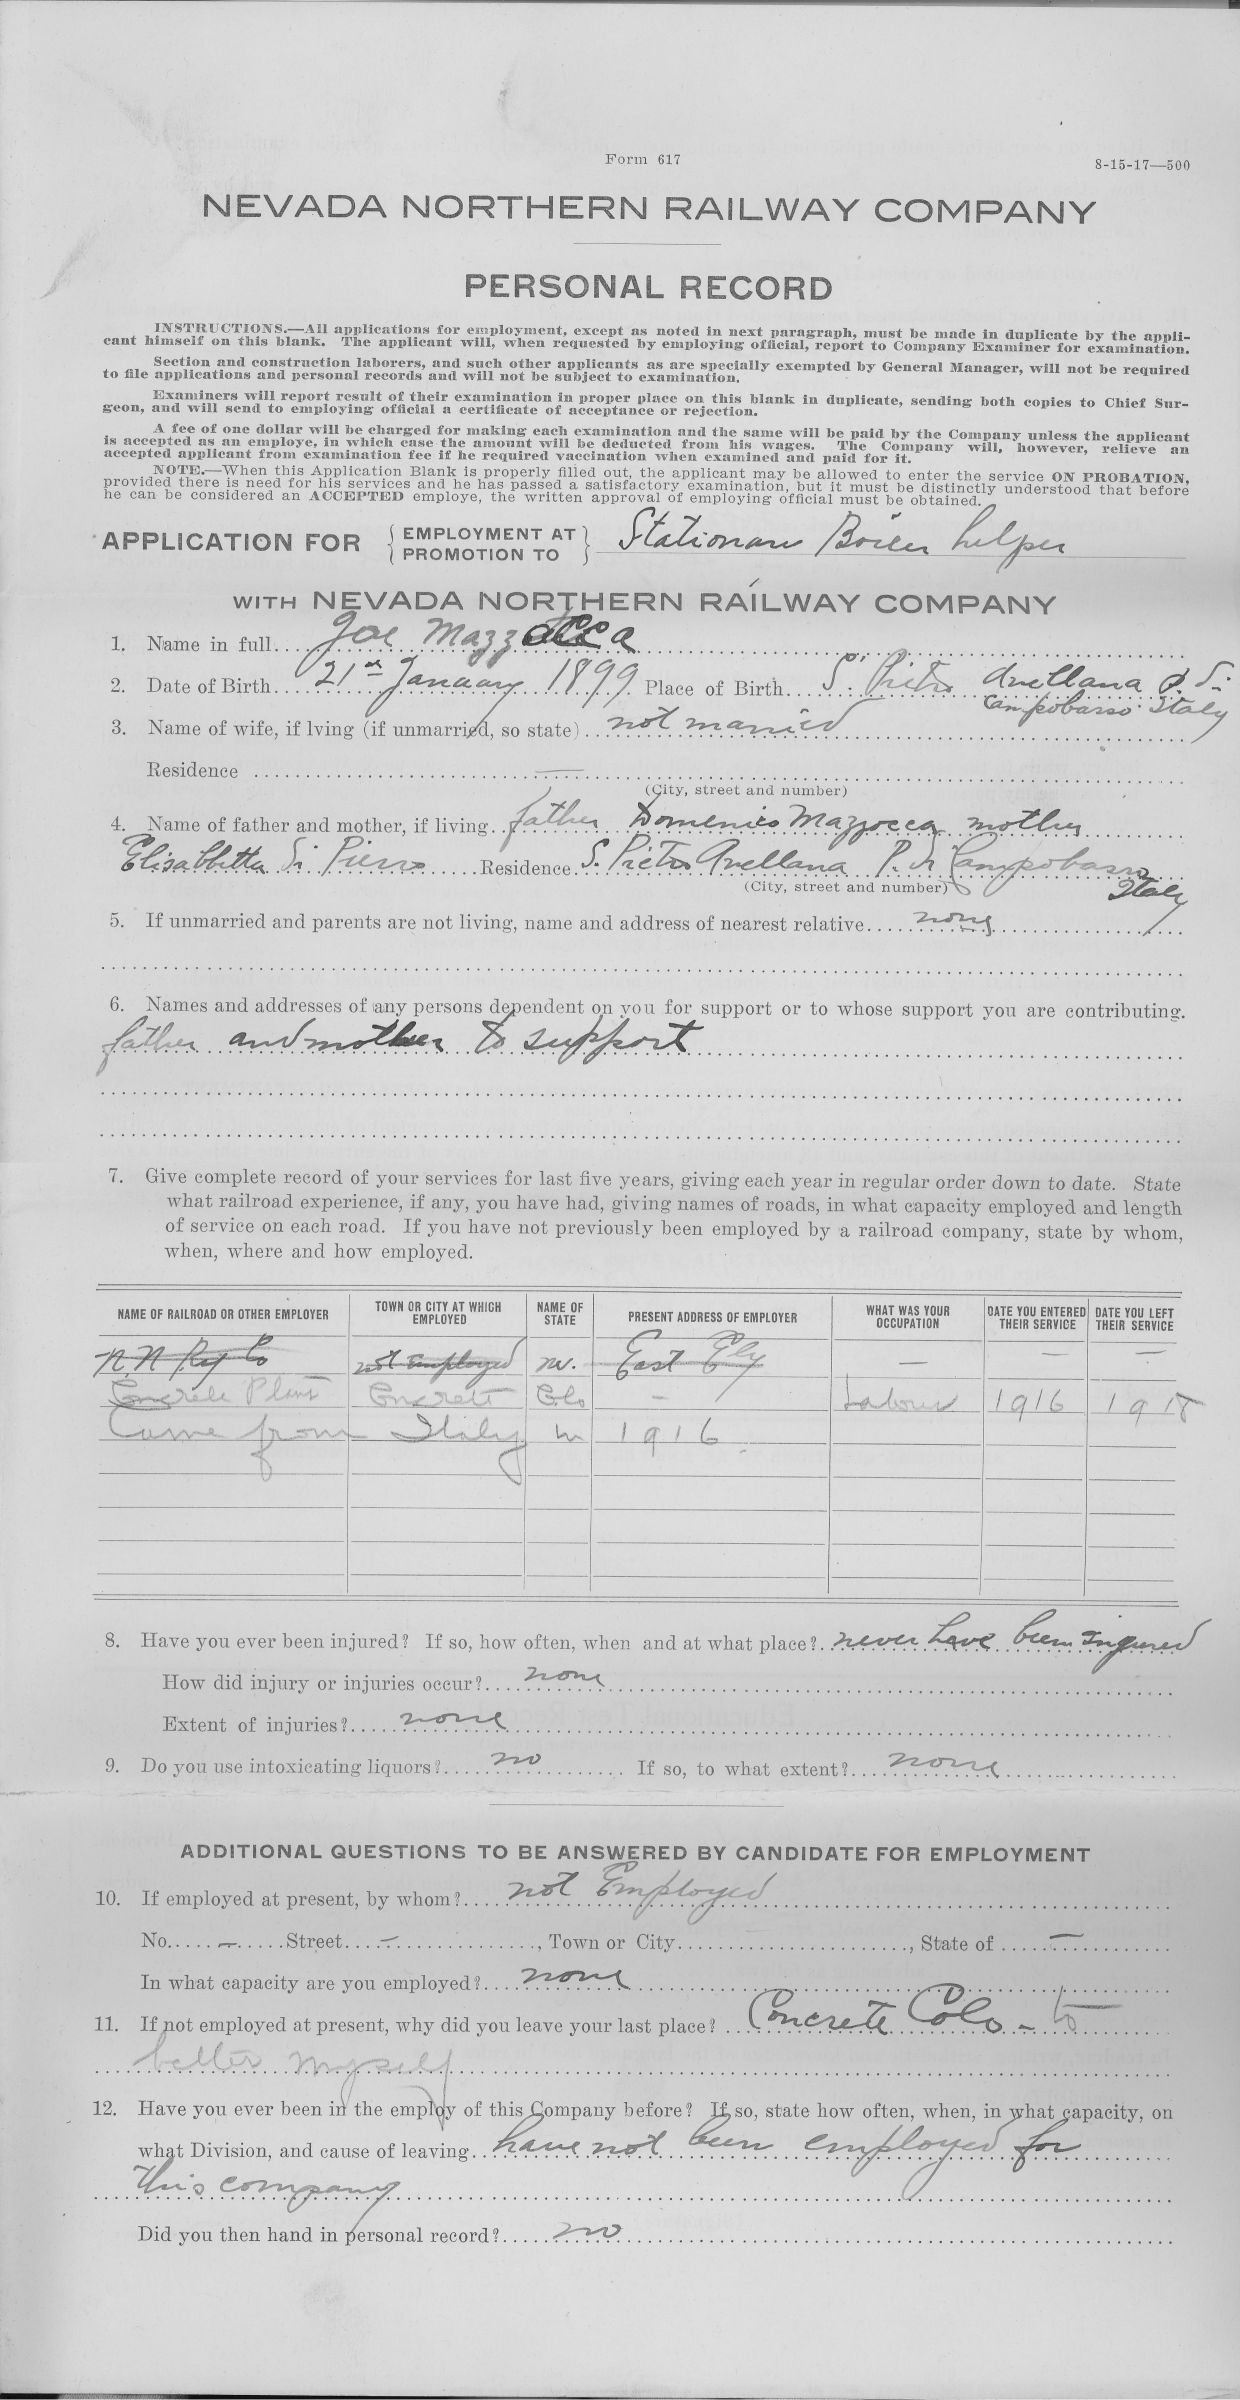 Form 617
8-15-17—500
NEVADA NORTHERN RAILWAY COMPANY
PERSONAL RECORD
INSTRUCTIONS.—All applications for employment, except as noted in next paragraph, must be made in duplicate by the appli-
cant himself on this blank. The applicant will, when requested by employing official, report to Company Examiner for examination.
Section and construction laborers, and such other applicants as are specially exempted by General Manager, will not be required
to file applications and personal records and will not be subject to examination.
Examiners will report result of their examination in proper place on this blank in duplicate, sending both copies to Chief Sur-
geon, and will send to employing official a certificate of acceptance or rejection.
A fee of one dollar will be charged for making each examination and the same will be paid by the Company unless the applicant
is accepted as an employe, in which case the amount will be deducted from his wages. The Company will, however, relieve an
accepted applicant from examination fee if he required vaccination when examined and paid for it.
NOTE.—When this Application Blank is properly filled out, the applicant may be allowed to enter the service ON PROBATION,
provided there is need for his services and he has passed a satisfactory examination, but it must be distinctly understood that before
he can be considered an ACCEPTED employe, the written approval of employing official must be obtained.
APPLICATION FOR { EMPLOYMENT AT } Stationare Boiler helper
{ PROMOTION TO }
WITH NEVADA NORTHERN RAILWAY COMPANY
1. Name in full.... Joe Mazzocca
2. Date of Birth.... 21st January 1899 Place of Birth.... S. Pietro Avellana P. di
Campobasso Italy
3. Name of wife, if lving (if unmarried, so state).. not married
Residence —
(City, street and number)
4. Name of father and mother, if living. father Domenico Mazzocca mother
Elisabbitta Di Pierro Residence S. Pietro Avellana P. di Campobasso
(City, street and number) Italy
5. If unmarried and parents are not living, name and address of nearest relative.... none
6. Names and addresses of any persons dependent on you for support or to whose support you are contributing.
father and mother to support
7. Give complete record of your services for last five years, giving each year in regular order down to date. State
what railroad experience, if any, you have had, giving names of roads, in what capacity employed and length
of service on each road. If you have not previously been employed by a railroad company, state by whom,
when, where and how employed.
NAME OF RAILROAD OR OTHER EMPLOYER TOWN OR CITY AT WHICH EMPLOYED NAME OF STATE PRESENT ADDRESS OF EMPLOYER WHAT WAS YOUR OCCUPATION DATE YOU ENTERED THEIR SERVICE DATE YOU LEFT THEIR SERVICE
N. N Ry Co not Employed nv. East Ely — — —
Concrete Plant Concrete Colo — Labour 1916 1918
Came from Italy in 1916
8. Have you ever been injured? If so, how often, when and at what place?. never have been Ingured
How did injury or injuries occur?.... none
Extent of injuries?.... none
9. Do you use intoxicating liquors?.... no If so, to what extent?.... none
ADDITIONAL QUESTIONS TO BE ANSWERED BY CANDIDATE FOR EMPLOYMENT
10. If employed at present, by whom?.... not Employed
No.... — Street.... — , Town or City...., State of .... —
In what capacity are you employed?.... none
11. If not employed at present, why did you leave your last place? ... Concrete Colo - to
better myself
12. Have you ever been in the employ of this Company before? If so, state how often, when, in what capacity, on
what Division, and cause of leaving.. have not been employed for
this company
Did you then hand in personal record?.... no